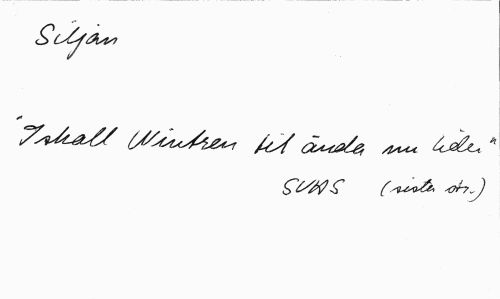 Siljan
"Iskall Wintren til ända nu lider"
SVHS (sista str.)